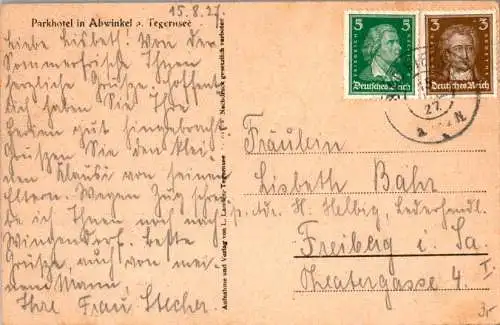 15.8.27
Parkhotel in Abwinkel a. Tegernsee
Liebe Lisbeth! Von der
Sommerfrische Ihnen
herzliche Grüße. Hoffent-
lich haben Sie Ihre
Ferien gut hingebracht.
Grüßen Sie den klei-
nen Klausi von seinen
Eltern. Wegen Zug schrei-
be ich Ihnen noch nach
Wingendorf. Beste
Grüße, auch von mei-
nem Mann,
Ihre Frau Stecher
Aufnahme und Verlag von L. Tegernsee Nachdruck gesetzlich verboten
5 5
FRIEDRICH
Deutsches Reich
3 3
Deutsches Reich
27.
Fräulein
Lisbeth Bähr
H. Helbig, Lederhandl.
Freiberg i. Sa.
Theatergasse 4. I